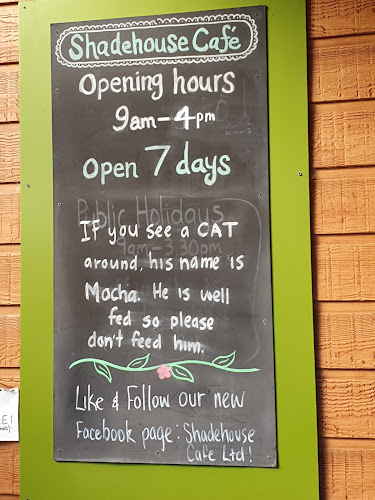 Shadehouse Café
Opening hours
9am-4pm
Open 7 days
Public Holidays
9am-3:30pm
If you see a CAT
around, his name is
Mocha. He is well
fed so please
don't feed him.
Like & Follow our new
Facebook page: Shadehouse
Cafe Ltd!